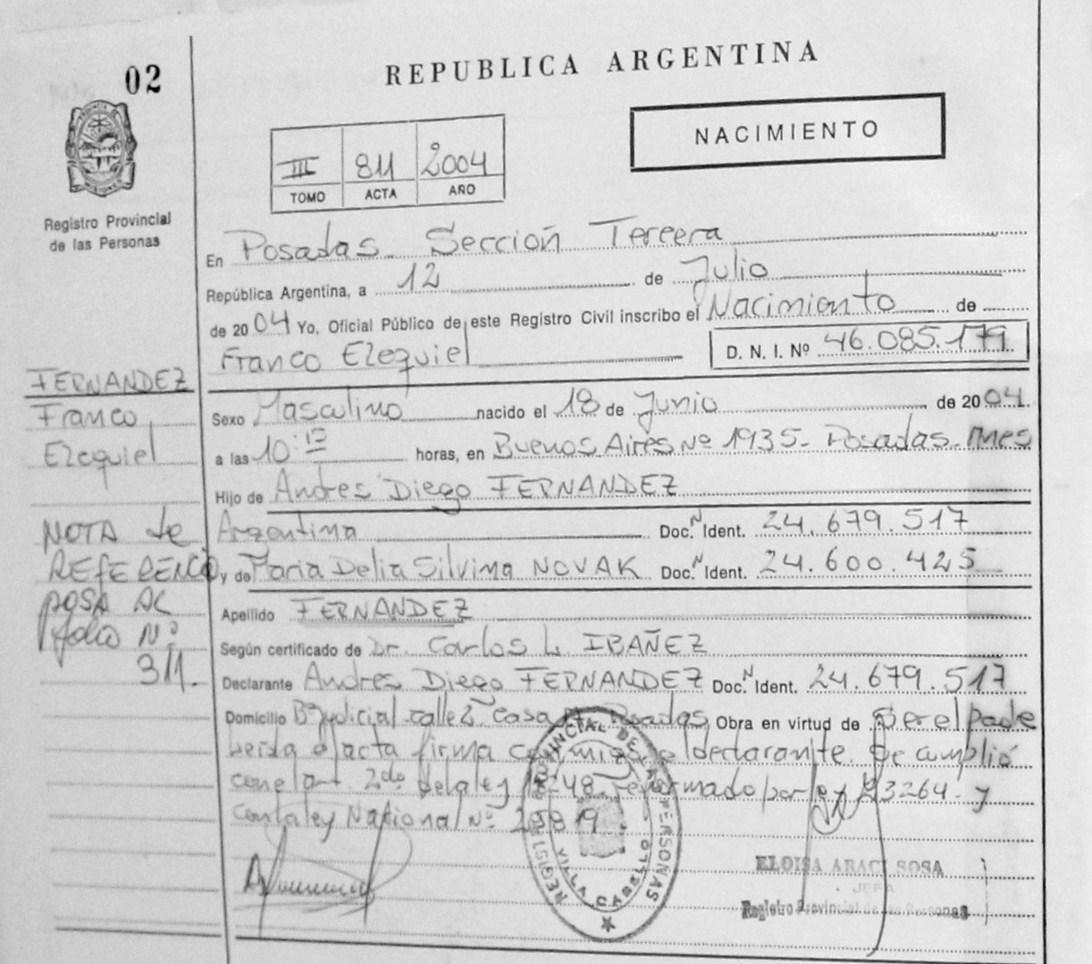 02
REPUBLICA ARGENTINA
NACIMIENTO
III 811 2004
TOMO ACTA AÑO
Registro Provincial
de las Personas
En Posadas Sección Tercera
República Argentina, a 12 de Julio
de 2004 Yo, Oficial Público de este Registro Civil inscribo el Nacimiento de
Franco Ezequiel D. N. I. Nº 46.085.179
FERNANDEZ
Franco
Ezequiel
Sexo Masculino nacido el 18 de Junio de 2004.
a las 10 horas, en Buenos Aires Nº 1935- Posadas- Mnes
Hijo de Andres Diego FERNANDEZ
Argentina Doc. N Ident. 24.679.517
y de Maria Delia Silvina NOVAK Doc. N Ident. 24.600.425
NOTA de
REFERENCIA
POSA AL
folio Nº
311.
Apellido FERNANDEZ
Según certificado de Dr. Carlos L. IBAÑEZ
Declarante Andres Diego FERNANDEZ Doc. N Ident. 24.679.517
Domicilio Bº Judicial calle 2 casa Posadas Obra en virtud de Ser el padre
leida el acta firma conmigo el declarante. Se cumplió
con el art. 2do de la ley 18.248 reformado por ley 23264- y
con la ley Nacional Nº
REGISTRO PROVINCIAL DE LAS PERSONAS
VILLA CABELLO
ELOISA ARACI SOSA
JEFA
Registro Provincial de las Personas